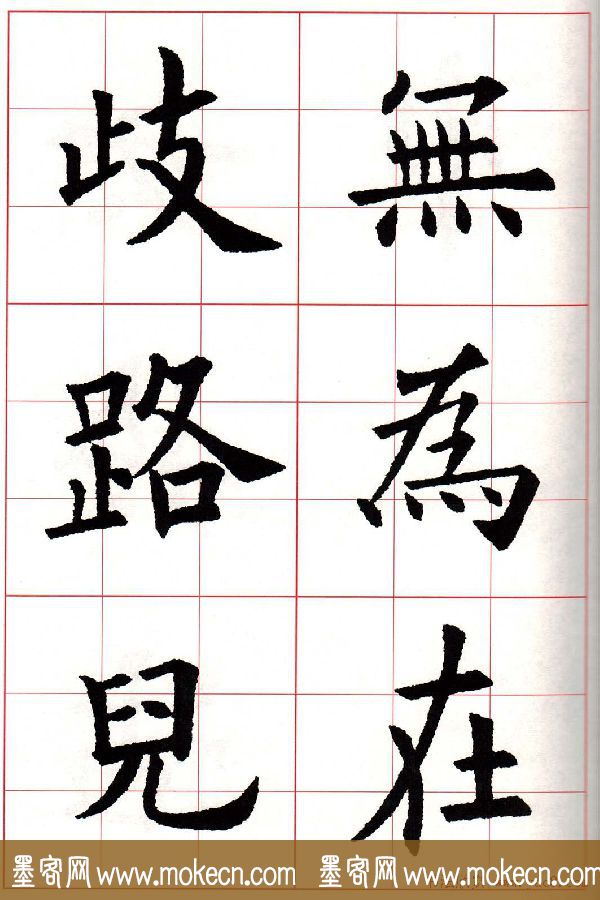 無為在
歧路兒
墨客网 www.mokecn.com 墨客网 www.mokecn.com